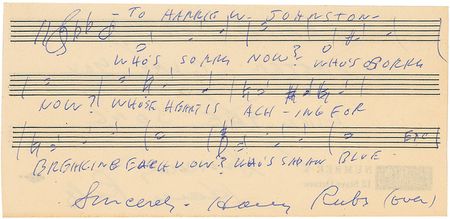 - TO HARRIE W. JOHNSTON -
WHO'S SORRY NOW? WHO'S SORRY
NOW? WHOSE HEART IS ACH - ING FOR
BREAKING EACH VOW? WHO'S SAD AN BLUE
ETC
Sincerely - Harry Ruby (over)